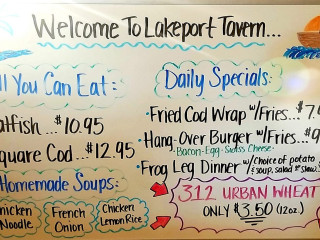 Welcome To Lakeport Tavern...
ll You Can Eat:
atfish ...$10.95
quare Cod ...$12.95
Homemade Soups:
hicken Noodle
French Onion
Chicken Lemon Rice
Daily Specials:
•Fried Cod Wrap w/Fries...$7.
•Hang-Over Burger w/Fries...$9
•Bacon-Egg-Swiss Cheese•
•Frog Leg Dinner w/choice of potato
soup, salad
312 URBAN WHEAT
ONLY $3.50 (12oz.)